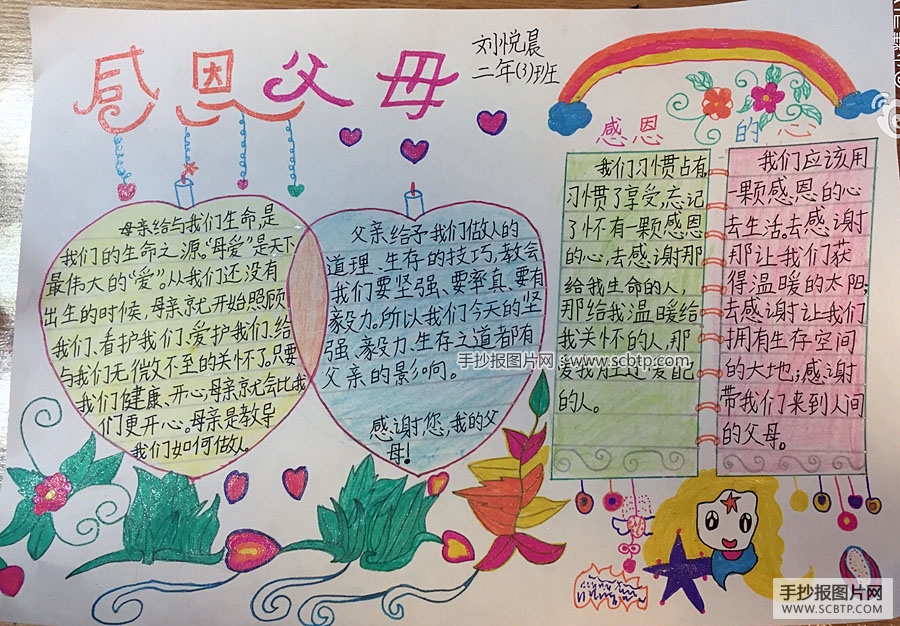 感恩父母
刘悦晨
二年(3)班
母亲给与我们生命,是
我们的生命之源。“母爱”是天下
最伟大的“爱”。从我们还没有
出生的时候,母亲就开始照顾
我们、看护我们、爱护我们、给
与我们无微不至的关怀了。只要
我们健康、开心,母亲就会比我
们更开心。母亲是教导
我们如何做人。
父亲给予我们做人的
道理、生存的技巧,教会
我们要坚强、要率真、要有
毅力。所以我们今天的坚
强、毅力、生存之道都有
父亲的影响。
感谢您,我的父
母!
感恩的心
我们习惯占有,
习惯了享受,忘记
了怀有一颗感恩
的心,去感谢那
给我生命的人,
那给我温暖给
我关怀的人,那
爱我
的人。
我们应该用
一颗感恩的心
去生活,去感谢
那让我们获
得温暖的太阳;
去感谢让我们
拥有生存空间
的大地;感谢
带我们来到人间
的父母。
手抄报图片网 www.scbtp.com
手抄报图片网
WWW.SCBTP.COM